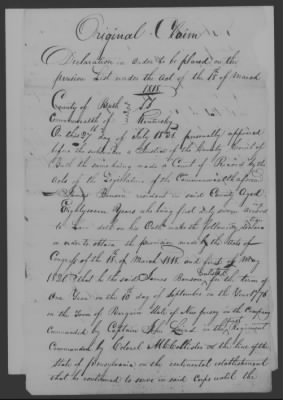 Original Claim
Declaration in order to be placed on the
pension List under the act of the 18th of March
1818
County of Bath
Commonwealth of Kentucky
On this 27th day of July 18 personally appeared
before the a Justice of the County Court of
Bath the same being made a Court of Record by the
Acts of the Legislature of the Commonwealth aforesaid
James resident in said County Aged
years who being first duly sworn according
to Law doth on his Oath make the following
in order to obtain the provision made by the Acts of
Congress of the 18 of March 1818 and first of May
1820 that he the said James Enlisted for the term of
One Year on the day of September in the Year 1776
in the Town of State of New Jersey in the Company
Commanded by Captain in the Regiment
Commanded by Colonel of the line of the
State of Pennsylvania on the continental establishment
that he continued to serve in said Corps until the